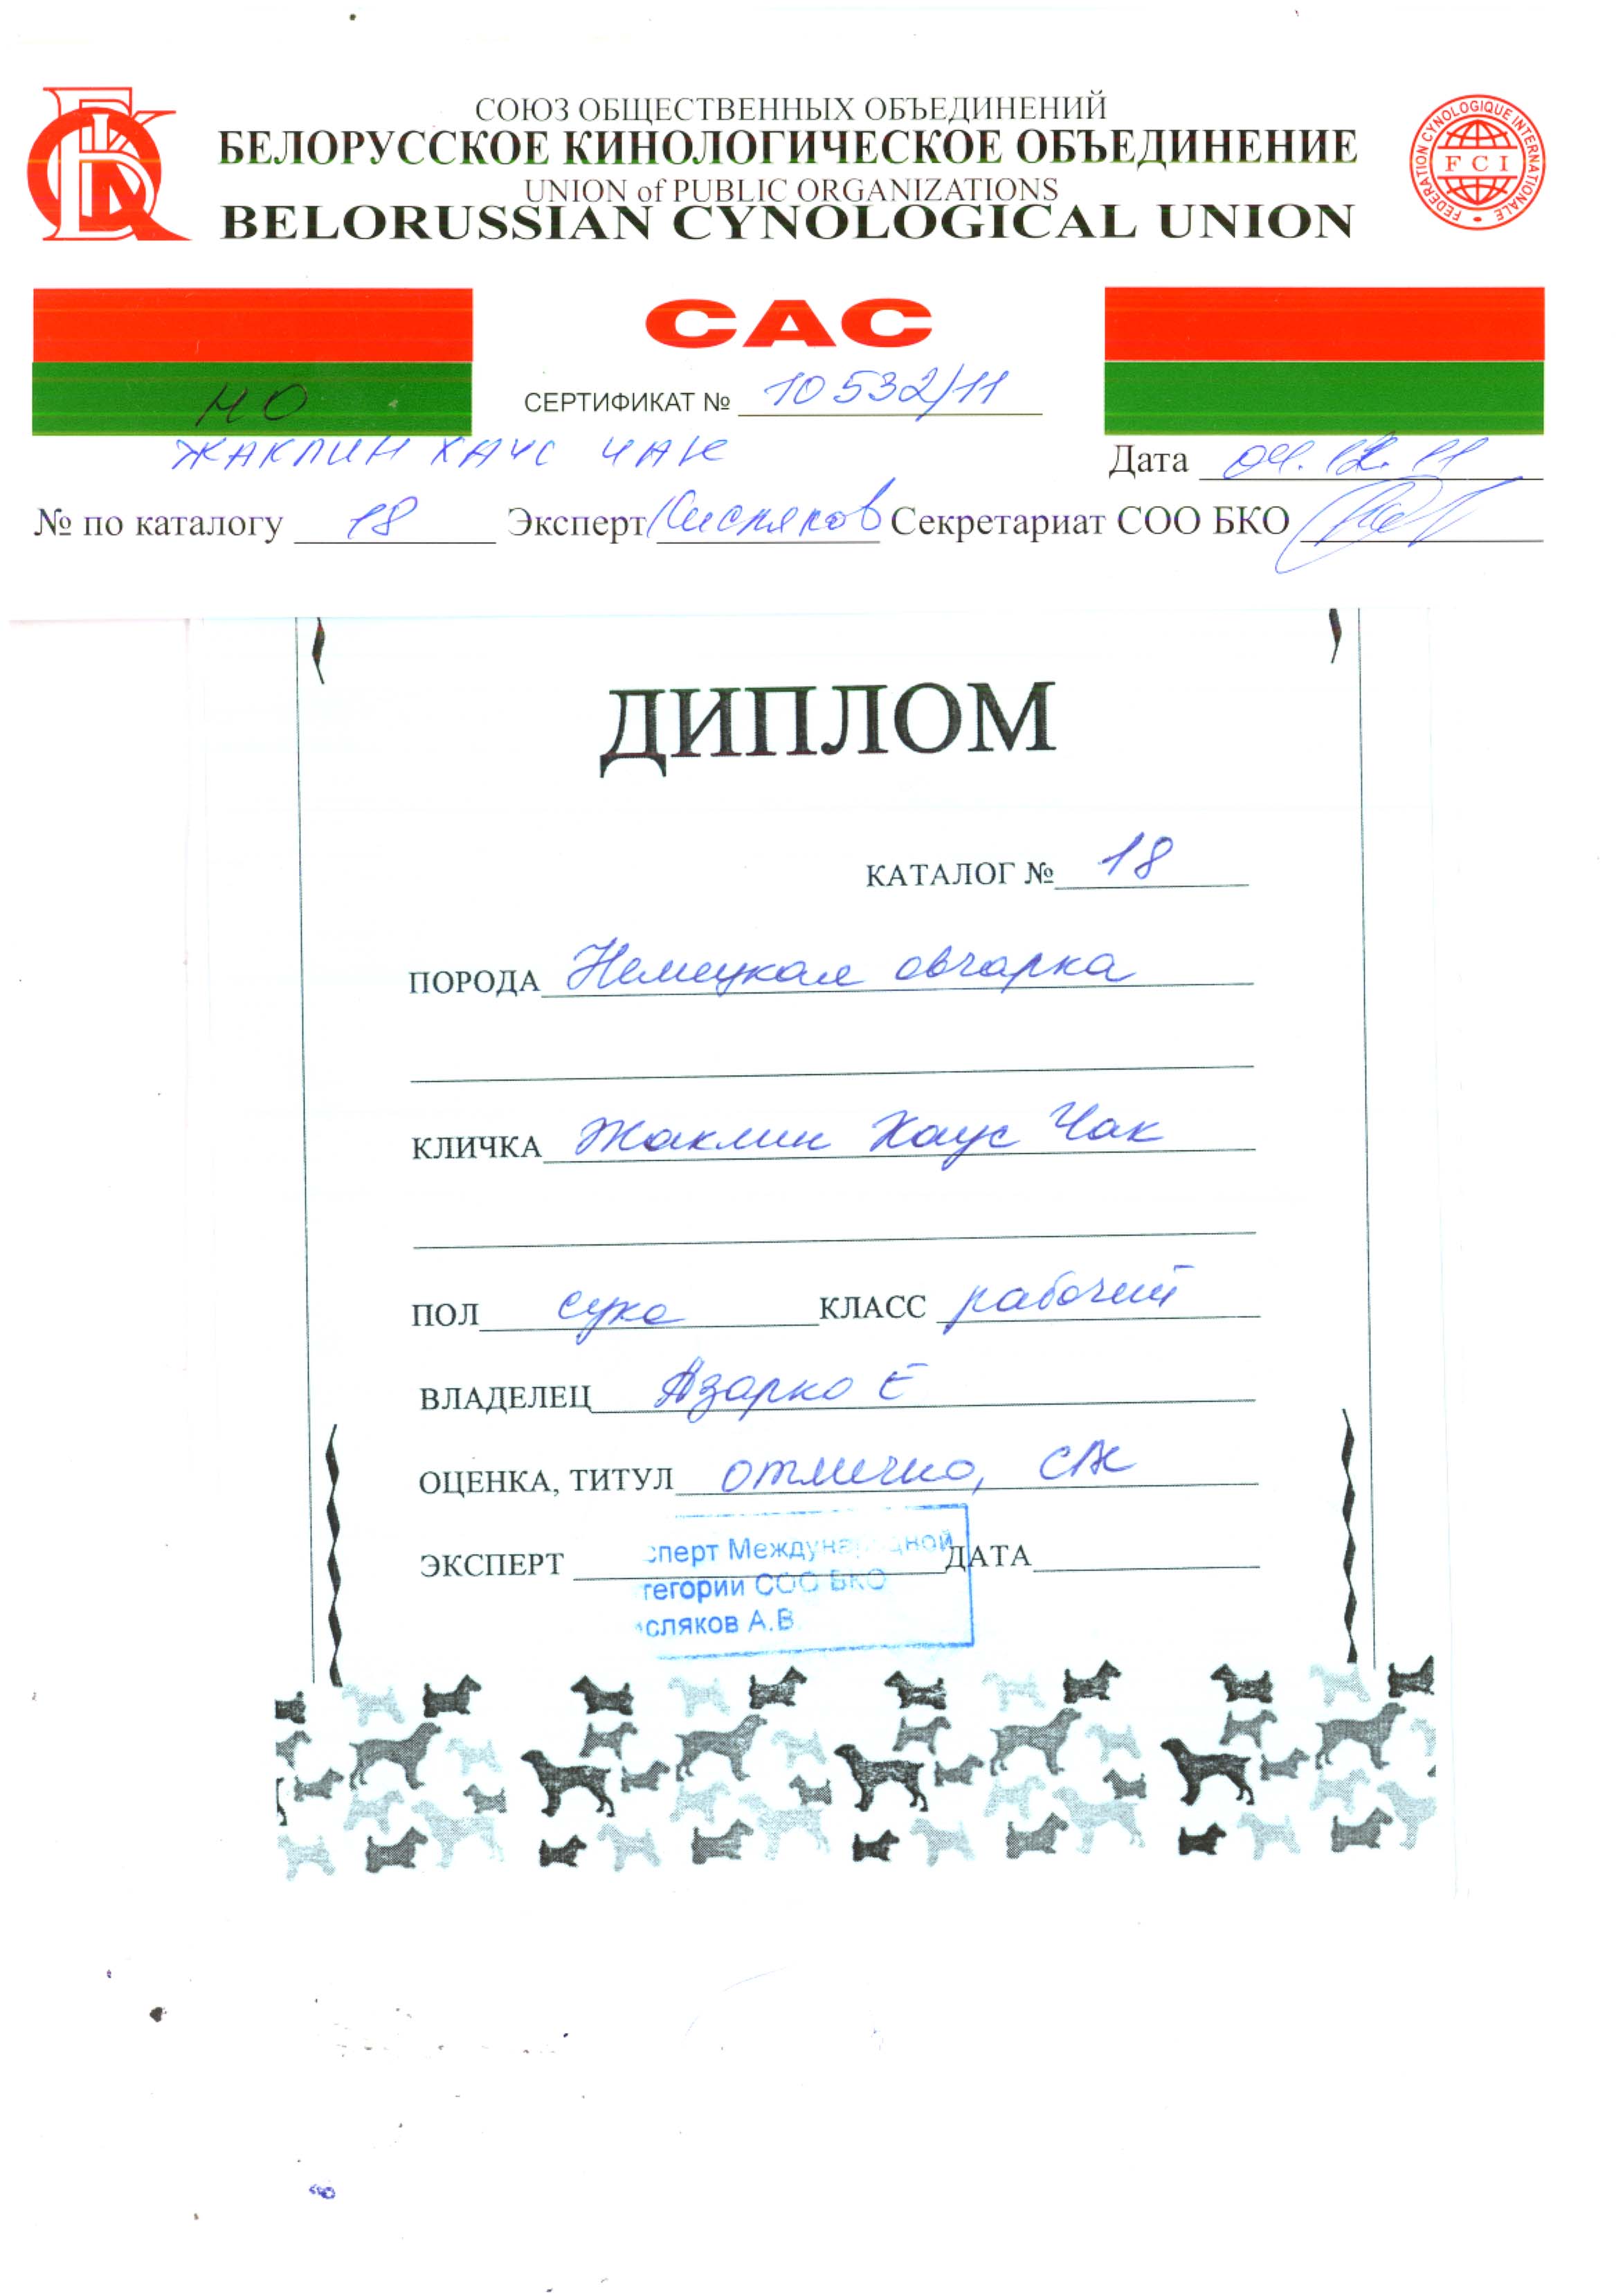 СОЮЗ ОБЩЕСТВЕННЫХ ОБЪЕДИНЕНИЙ
БЕЛОРУССКОЕ КИНОЛОГИЧЕСКОЕ ОБЪЕДИНЕНИЕ
UNION of PUBLIC ORGANIZATIONS
BELORUSSIAN CYNOLOGICAL UNION
FEDERATION CYNOLOGIQUE INTERNATIONALE
FCI
CAC
НО
СЕРТИФИКАТ № 10532/11
ЖАКЛИН ХАУС ЧАК
Дата 04.12.11
№ по каталогу 18 Эксперт Секретариат СОО БКО
ДИПЛОМ
КАТАЛОГ № 18
ПОРОДА Немецкая овчарка
КЛИЧКА Жаклин Хаус Чак
ПОЛ сука КЛАСС рабочий
ВЛАДЕЛЕЦ Азарко Е
ОЦЕНКА, ТИТУЛ отлично, САС
ЭКСПЕРТ ДАТА
сперт Международной
тегории СОО БКО
исляков А.В.